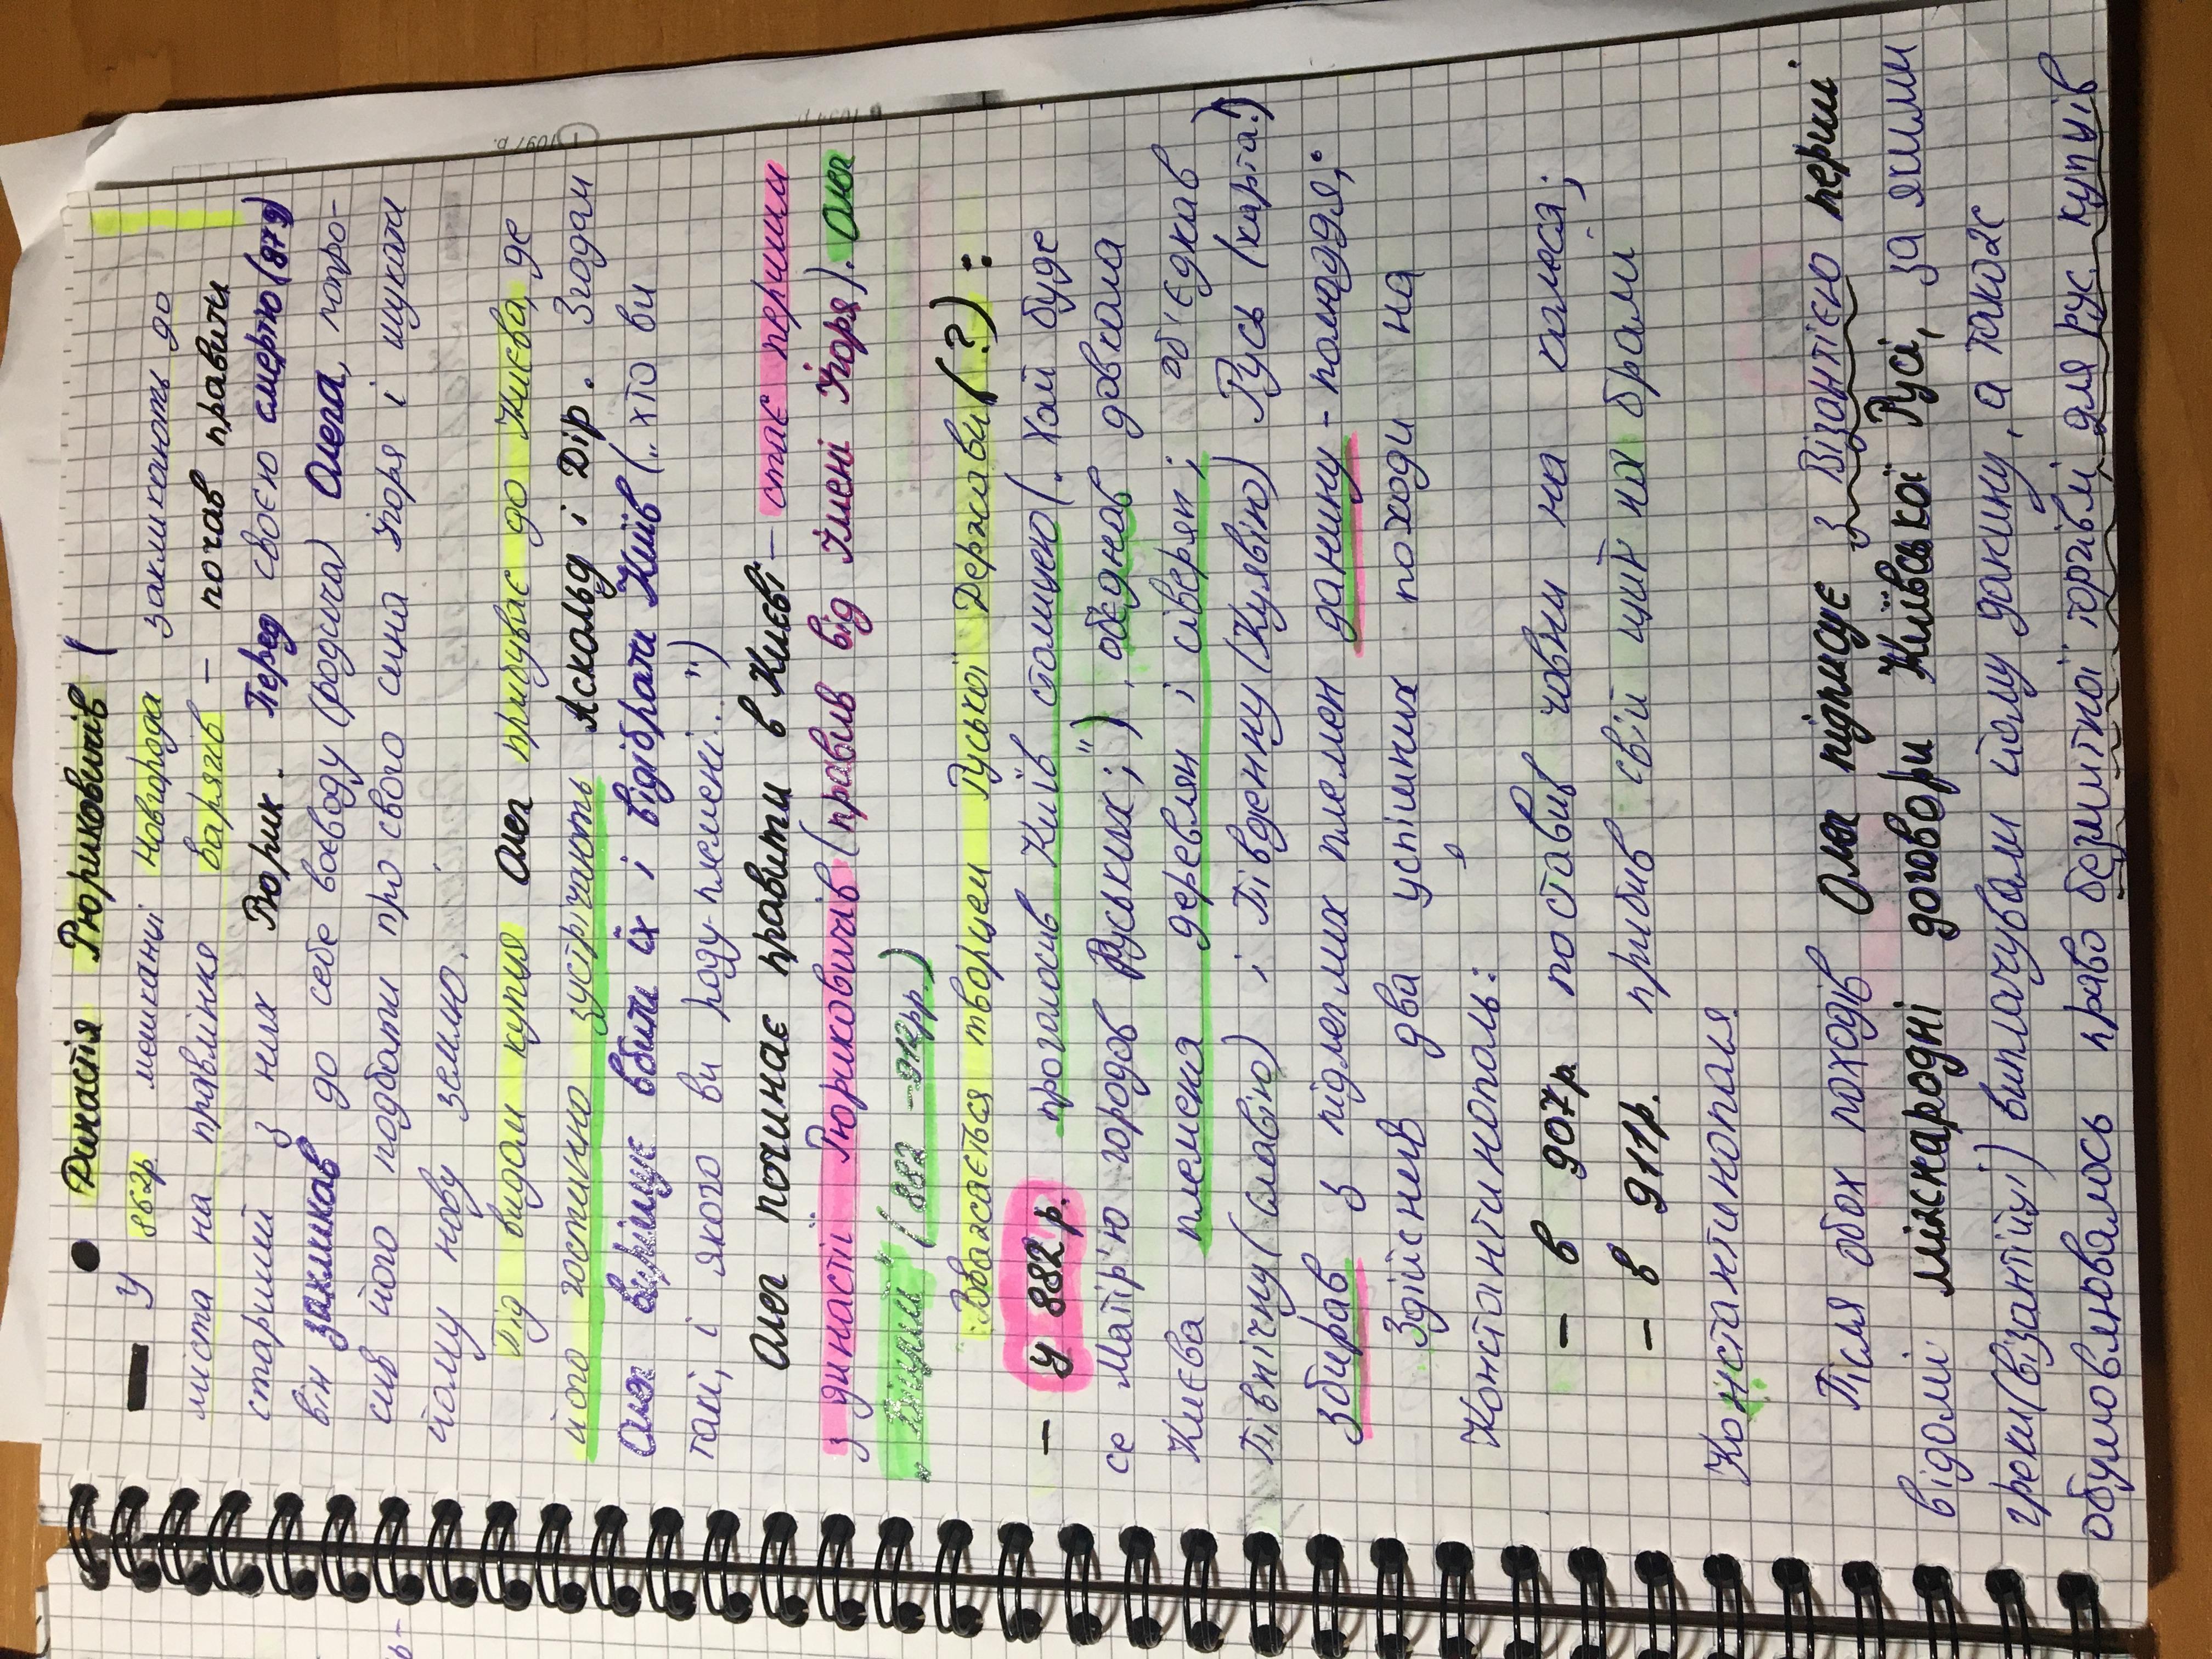 • Династія Рюриковичів
— У 862р. мешканці Новгорода закликають до
міста на правління варягів — почав правити
старший з них Рюрик. Перед своєю смертю (879)
він закликав до себе воєводу (родича) Олега, попро-
сив його подбати про свого сина Ігоря і шукати
йому нову землю.
Під видом купця Олег прибуває до Києва, де
його гостинно зустрічають Аскольд і Дір. Згодом
Олег вирішує вбити їх і відібрати Київ (.. хто ви
такі, і якого ви роду-племені.. ")
Олег починає правити в Києві — стає першим
з династії Рюриковичів (правив від імені Ігоря). Олег
„ Віщий" (882 – 912рр.)
Вважається творцем Руської Держави (?) :
– У 882 р. проголосив Київ столицею (.. Хай буде
се Матір'ю городов Руських; "); об'єднав довкола
Києва племена деревлян і сіверян; об'єднав
Північну (Славію) і Південну (Куявію) Русь (карта!)
збирав з підлеглих племен данину - полюддя;
Здійснив два успішних походи на
Константинополь:
– в 907р. поставив човни на колеса;
– в 911р. прибив свій щит на брамі
Константинополя
Після обох походів Олег підписує з Візантією перші
відомі міжнародні договори Київської Русі, за якими
греки (візантійці) виплачували йому данину, а також
обумовлювалось право безмитної торгівлі для рус. купців
1097 р.